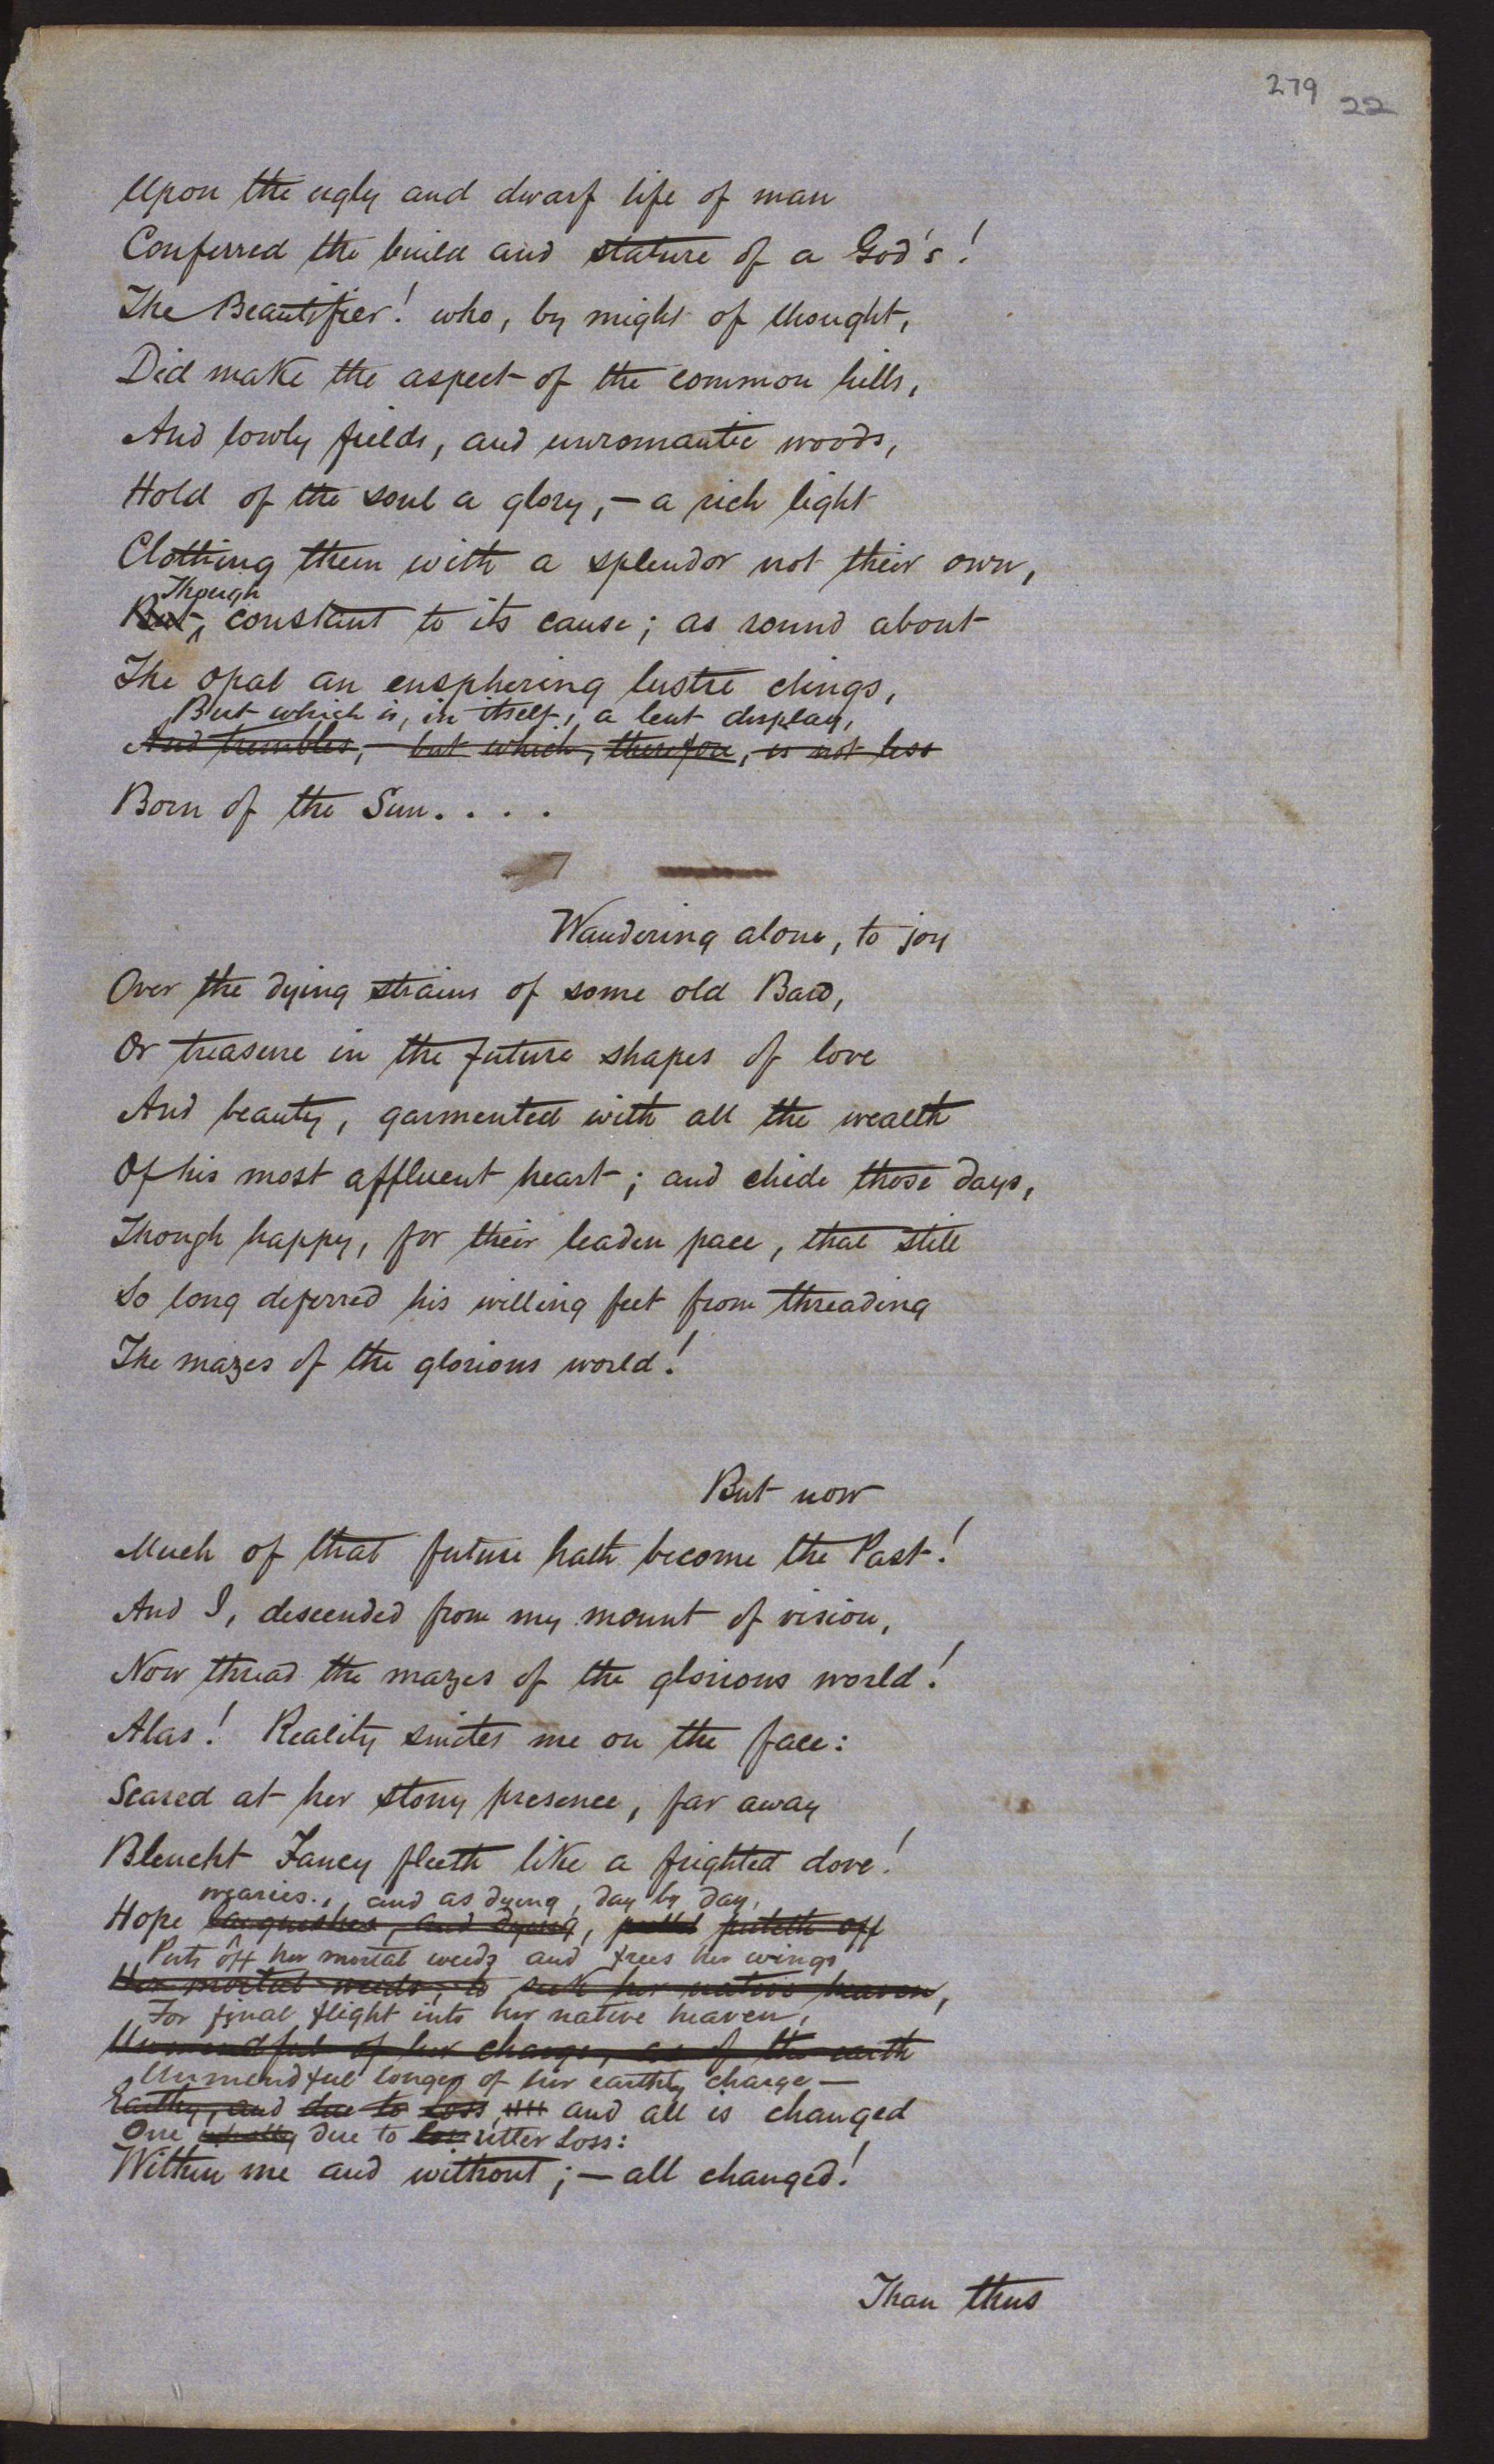 279 22
Upon the ugly and dwarf life of man
Conferred the build and stature of a God's!
The Beautifier! who, by might of thought,
Did make the aspect of the common hills,
And lowly fields, and unromantic woods,
Hold of the soul a glory, — a rich light
Clothing them with a splendor not their own,
Though
But constant to its cause; as round about
The opal an ensphering lustre clings,
But which is, in itself, a lent display,
And trembles, — but which, therefore, is not less
Born of the Sun. . . .
Wandering alone, to joy
Over the dying strains of some old Bard,
Or treasure in the future shapes of love
And beauty, garmented with all the wealth
Of his most affluent heart; and chide those days,
Though happy, for their leaden pace, that still
So long deferred his willing feet from threading
The mazes of the glorious world!
But now
Much of that future hath become the Past!
And I, descended from my mount of vision,
Now thread the mazes of the glorious world!
Alas! Reality smites me on the face:
Scared at her stony presence, far away
Blencht Fancy fleeth like a frighted dove!
wearies, and as dying, day by day,
Hope languishes, and dying, putteth off
Puts off her mortal weeds and frees her wings
Her mortal weeds, to seek her native heaven,
For final flight into her native heaven,
Unmindful of her charge, as of the earth
Unmindful longer of her earthly charge —
Earthy, and due to loss, and all is changed
One wholly due to utter loss:
Within me and without; — all changed!
Than thus